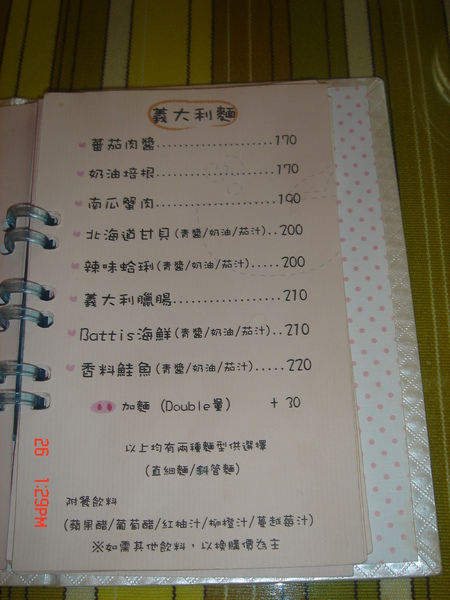 義大利麵
蕃茄肉醬..................170
奶油培根..................170
南瓜蟹肉..................190
北海道甘貝(青醬/奶油/茄汁)..200
辣味蛤琍(青醬/奶油/茄汁).....200
義大利臘腸.................210
Battis海鮮(青醬/奶油/茄汁)..210
香料鮭魚(青醬/奶油/茄汁).....220
加麵 (Double量) +30
以上均有兩種麵型供選擇
(直細麵/斜管麵)
附餐飲料
(蘋果醋/葡萄醋/紅柚汁/柳橙汁/蔓越莓汁)
※如需其他飲料,以換購價為主
26 1:29PM